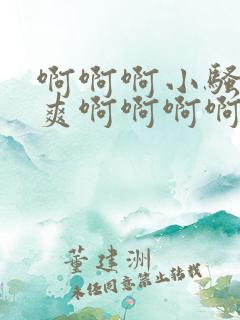 啊啊啊小骚
爽啊啊啊啊
董建洲
未经同意禁止转载